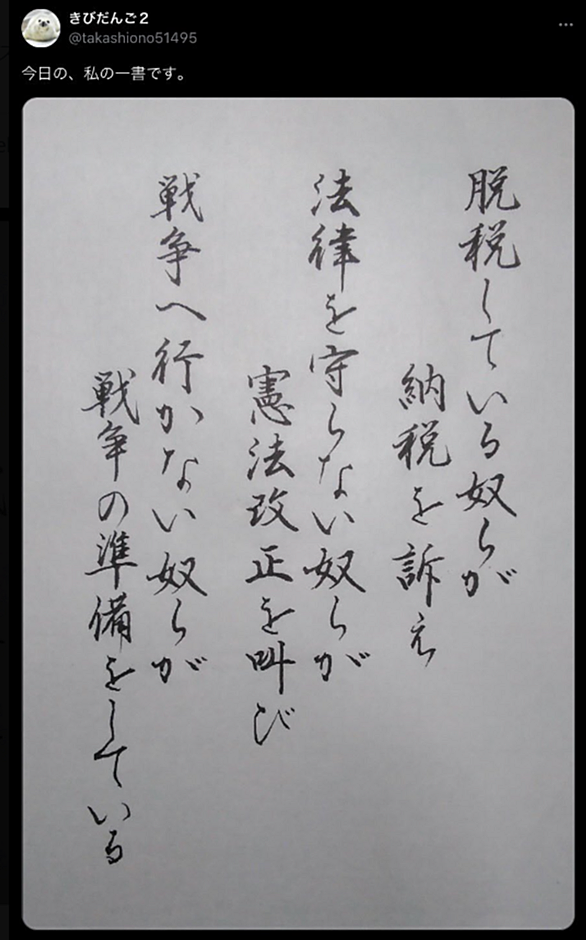 きびだんご２
@takashiono51495
今日の、私の一書です。
脱税している奴らが
納税を訴え
法律を守らない奴らが
憲法改正を叫び
戦争へ行かない奴らが
戦争の準備をしている